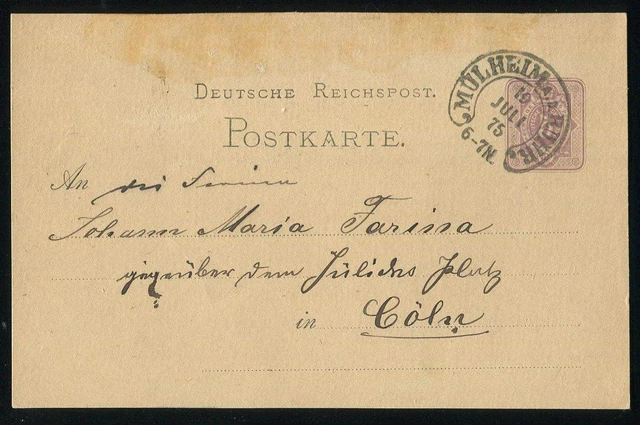 DEUTSCHE REICHSPOST.
POSTKARTE.
MÜLHEIM A. D. RUHR.
19
JULI
75
6-7N.
An die Firma
Johann Maria Farina
gegenüber dem Jülichs Platz
in Cöln